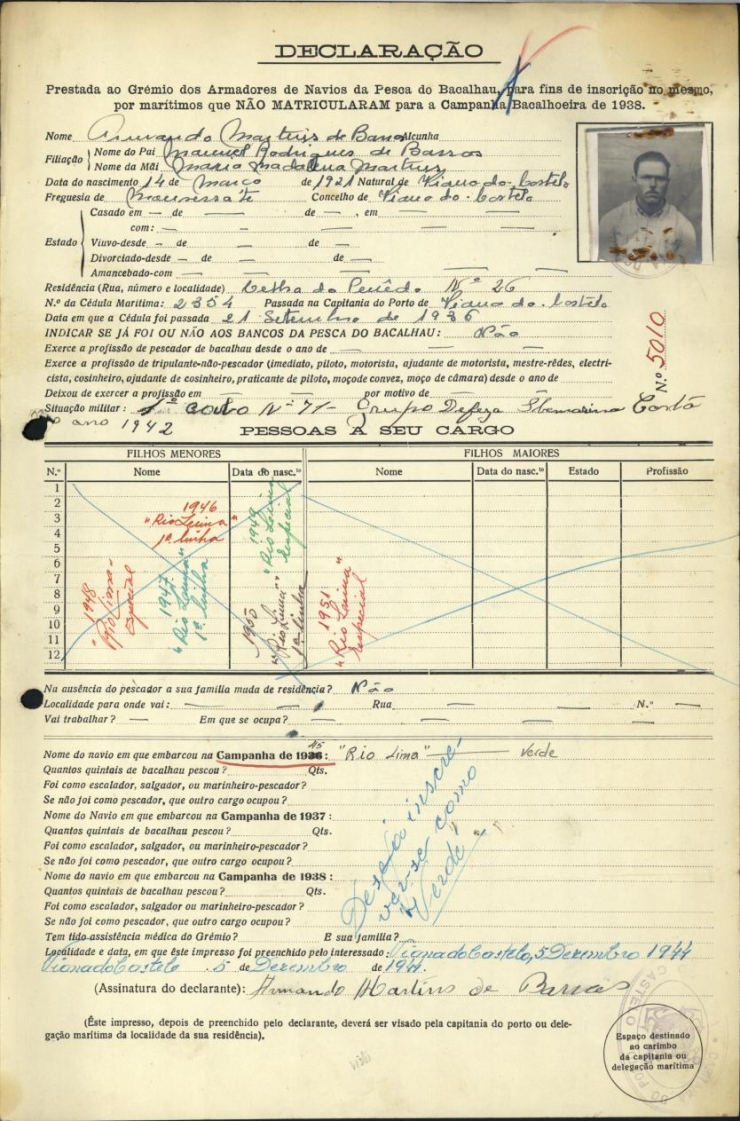 DECLARAÇÃO
Prestada ao Grémio dos Armadores de Navios da Pesca do Bacalhau, para fins de inscrição no mesmo,
por marítimos que NÃO MATRICULARAM para a Campanha Bacalhoeira de 1938.
Nome Armando Martins de Barros Alcunha
Filiação Nome do Pai Manuel Rodrigues de Barros
Nome da Mãi Maria Madalena Martins
Data do nascimento 14 de Março de 1921 Natural de Viana do Castelo
Freguesia de Concelho de Viana do Castelo
Casado em — de — de —, em — —
com: — — — — —
Estado Viuvo-desde — de — de —
Divorciado-desde — de — de —
Amancebado-com — — — —
Residência (Rua, número e localidade) Nº 26
N.º da Cédula Marítima: 2354 Passada na Capitania do Porto de Viana do Castelo
Data em que a Cédula foi passada 21 Setembro de 1936
INDICAR SE JÁ FOI OU NÃO AOS BANCOS DA PESCA DO BACALHAU: Não
N.º 5010
Exerce a profissão de pescador de bacalhau desde o ano de — — —
Exerce a profissão de tripulante-não-pescador (imediato, piloto, motorista, ajudante de motorista, mestre-rêdes, electri-
cista, cosinheiro, ajudante de cosinheiro, praticante de piloto, moço de convez, moço de câmara) desde o ano de —
Deixou de exercer a profissão em — — por motivo de — —
Situação militar: 1º cabo Nº 71 - Grupo Defeza Submarina Costa
no ano 1942
PESSOAS A SEU CARGO
FILHOS MENORES FILHOS MAIORES
N.º Nome Data do nasc.to Nome Data do nasc.to Estado Profissão
1
2
3
4
5
6
7
8
9
10
11
12
1946
"Rio Lima"
1ª linha
1948
"Rio Lima"
especial
1947
"Rio Lima"
1ª linha
1949
"Rio Lima"
especial
1950
"Rio Lima"
1ª linha
1951
"Rio Lima"
especial
Na ausência do pescador a sua família muda de residência? Não
Localidade para onde vai: — — Rua — — N.º —
Vai trabalhar? — Em que se ocupa? — — — —
Nome do navio em que embarcou na Campanha de 1936: 45 "Rio Lima" — Verde
Quantos quintais de bacalhau pescou? Qts.
Foi como escalador, salgador, ou marinheiro-pescador?
Se não foi como pescador, que outro cargo ocupou?
Nome do Navio em que embarcou na Campanha de 1937:
Quantos quintais de bacalhau pescou? Qts.
Foi como escalador, salgador, ou marinheiro-pescador?
Se não foi como pescador, que outro cargo ocupou?
Nome do navio em que embarcou na Campanha de 1938:
Quantos quintais de bacalhau pescou? Qts.
Foi como escalador, salgador ou marinheiro-pescador?
Se não foi como pescador, que outro cargo ocupou?
Deseja inscre-
ver-se como
"Verde"
Tem tido assistência médica do Grémio? E sua família?
Localidade e data, em que êste impresso foi preenchido pelo interessado: Viana do Castelo, 5 Dezembro 1944
Viana do Castelo 5 de Dezembro de 1944.
(Assinatura do declarante): Armando Martins de Barros
(Êste impresso, depois de preenchido pelo declarante, deverá ser visado pela capitania do porto ou dele-
gação marítima da localidade da sua residência).
Espaço destinado
ao carimbo
da capitania ou
delegação marítima